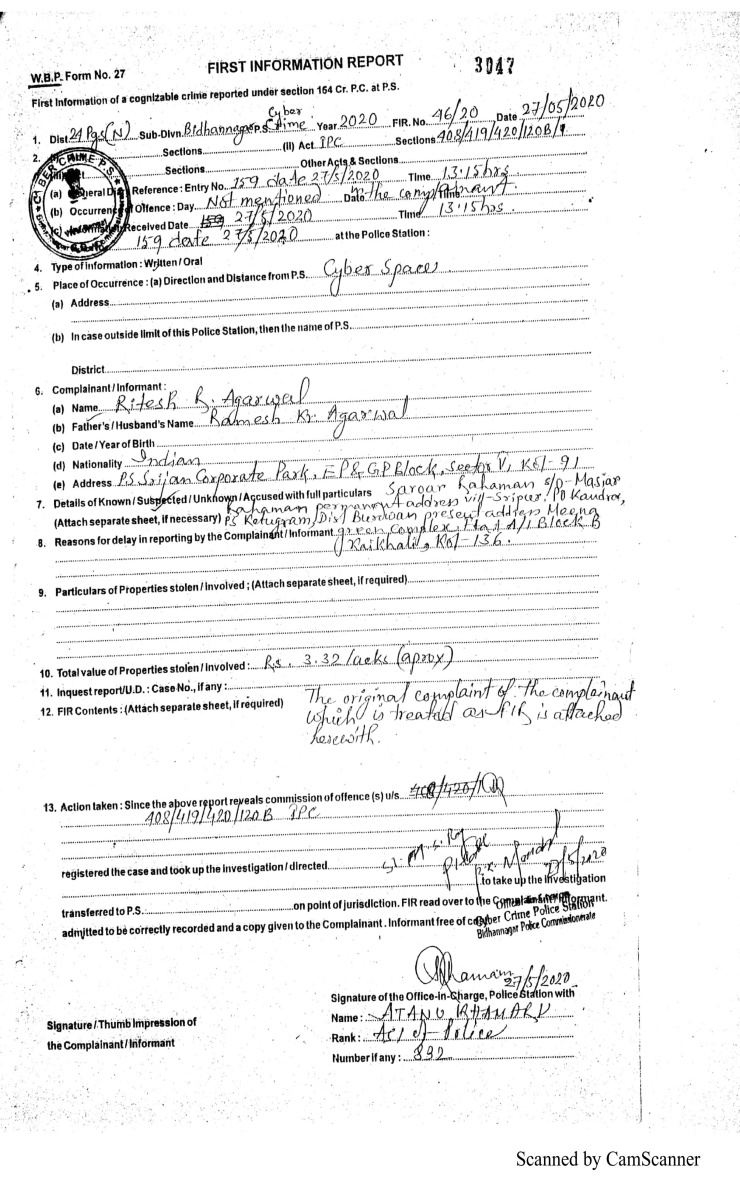 FIRST INFORMATION REPORT
3047
W.B.P. Form No. 27
First Information of a cognizable crime reported under section 154 Cr. P.C. at P.S.
1. Dist. 24 Pgs (N) Sub-Divn. Bidhannagar P.S. Cyber Crime Year 2020 FIR. No. 46/20 Date 27/05/2020
2. Sections (II) Act. IPC Sections 408/419/420/120B
Sections Other Acts & Sections
(a) General Di Reference : Entry No. 159 date 27/5/2020 Time 13.15 hrs
(b) Occurrence of Offence : Day. Not mentioned Date the complainant.
Received Date 27/5/2020 Time 13.15 hrs
159 date 27/5/2020 at the Police Station :
CYBER CRIME P.S.
4. Type of Information : Written / Oral
5. Place of Occurrence : (a) Direction and Distance from P.S. Cyber Space
(a) Address
(b) In case outside limit of this Police Station, then the name of P.S.
District
6. Complainant / Informant :
(a) Name Ritesh R. Agarwal
(b) Father's / Husband's Name Ramesh Kr. Agarwal
(c) Date / Year of Birth
(d) Nationality Indian
(e) Address PS Srijan Corporate Park, EP & GP Block, Sector V, Kol-91
7. Details of Known / Suspected / Unknown / Accused with full particulars Saroar Rahaman S/o- Masiar
Rahaman permanent address vill-Sripur, PO Kandra,
(Attach separate sheet, if necessary) PS Ketugram, Dist Burdwan present address Meena
8. Reasons for delay in reporting by the Complainant / Informant green Complex, Flat A/1 Block B
Kaikhali, Kol-136.
9. Particulars of Properties stolen / Involved ; (Attach separate sheet, if required)
10. Total value of Properties stolen / Involved : Rs. 3.32 lacks (aprox)
11. Inquest report/U.D. : Case No., if any :
12. FIR Contents : (Attach separate sheet, if required) The original complaint of the complainant
which is treated as FIR is attached
herewith.
13. Action taken : Since the above report reveals commission of offence (s) u/s. 408/420/
408/419/420/120B IPC
registered the case and took up the investigation / directed
27/5/2020
to take up the investigation
transferred to P.S. on point of jurisdiction. FIR read over to the Complainant / Informant.
admitted to be correctly recorded and a copy given to the Complainant. Informant free of cost
Cyber Crime Police Station
Bidhannagar Police Commissionerate
27/5/2020
Signature of the Office-in-Charge, Police Station with
Signature / Thumb Impression of
the Complainant / Informant
Name : ATANU
Rank : ASI of Police
Number if any : 892
Scanned by CamScanner